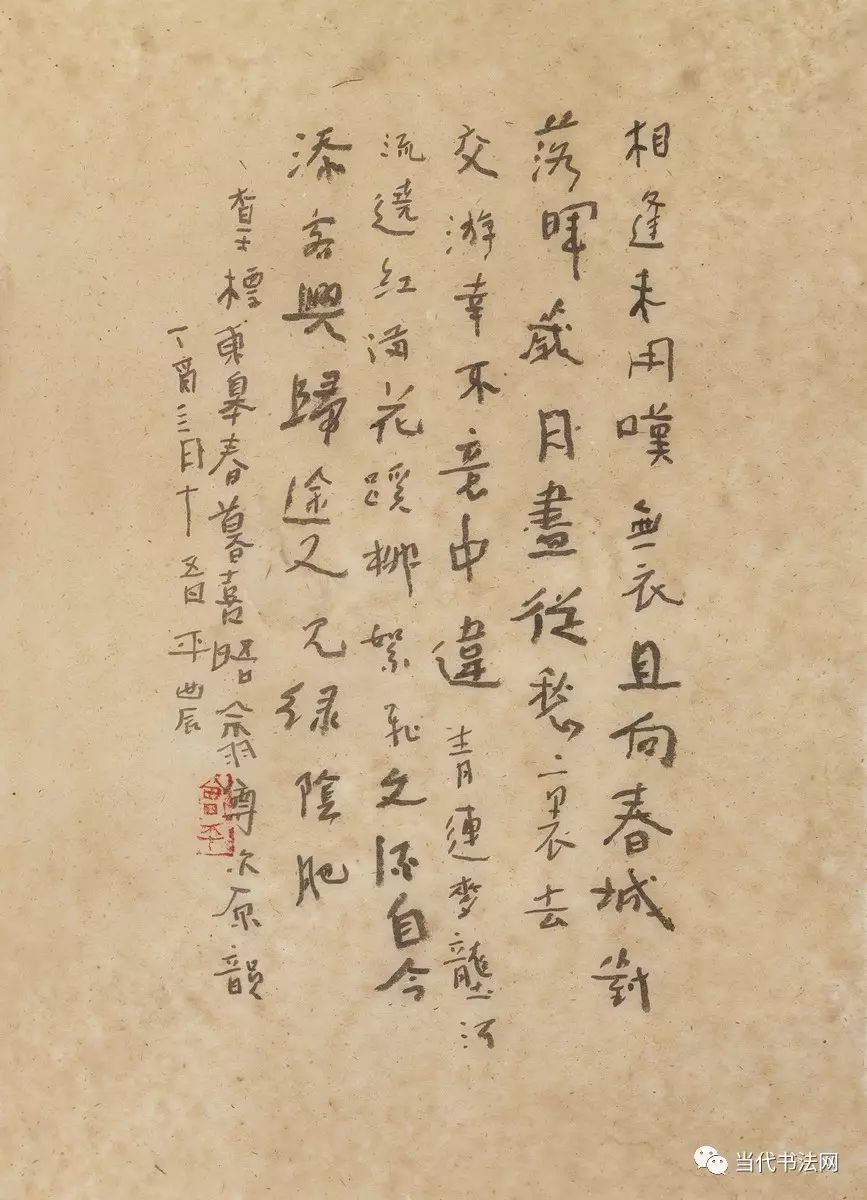 相逢未用嘆無衣且向春城對
落暉歲月盡從愁裏去
交游幸不意中違青連麥壟河
流遶紅滿花蹊柳絮飛文酒自今
添客興歸途又見綠陰肥
查士標東皋春暮喜晤翁樽次原韻
丁酉三月十五日平
曾平
当代书法网